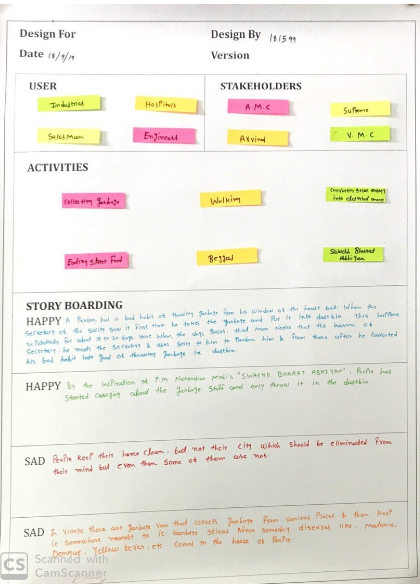 Design For
Design By 181599
Date 18/9/19
Version
USER
STAKEHOLDERS
Industries
Hospitals
A.M.C
Supreme
SalesMan
Engineers
Arvind
V.M.C
ACTIVITIES
Collecting Garbage
Walking
into electrical energy
Eating Street Food
Beggar
Swachh Bharat
Abhiyan
STORY BOARDING
HAPPY A Person has a bad habit of throwing Garbage from his window at the heart but when the
Secretary of the society saw it first time he took the garbage and Put it into dustbin. This happens
repeatedly for about 15 to 20 days. But when the days Passes, that Man Notice that the
Secretary he meets the Secretary & asks Sorry to him to Pardon him & from then after he converted
his bad habit into good of throwing Garbage in dustbin.
HAPPY By the inspiration of P.M Narendra Modi's "SWACHH BHARAT ABHIYAN". People has
Started carrying about the garbage Stuff and only throw it in the dustbin.
SAD People keep their home clean, but not their city which should be eliminated from
their mind but even than some of them are not.
SAD In Village there are Garbage Van that collects Garbage from various Places & then keep
it Somewhere nearest to it. Garbage Stinks After Someday diseases like, Malaria,
Dengue, Yellow fever, etc. comes to the house of People.
CS Scanned with
CamScanner